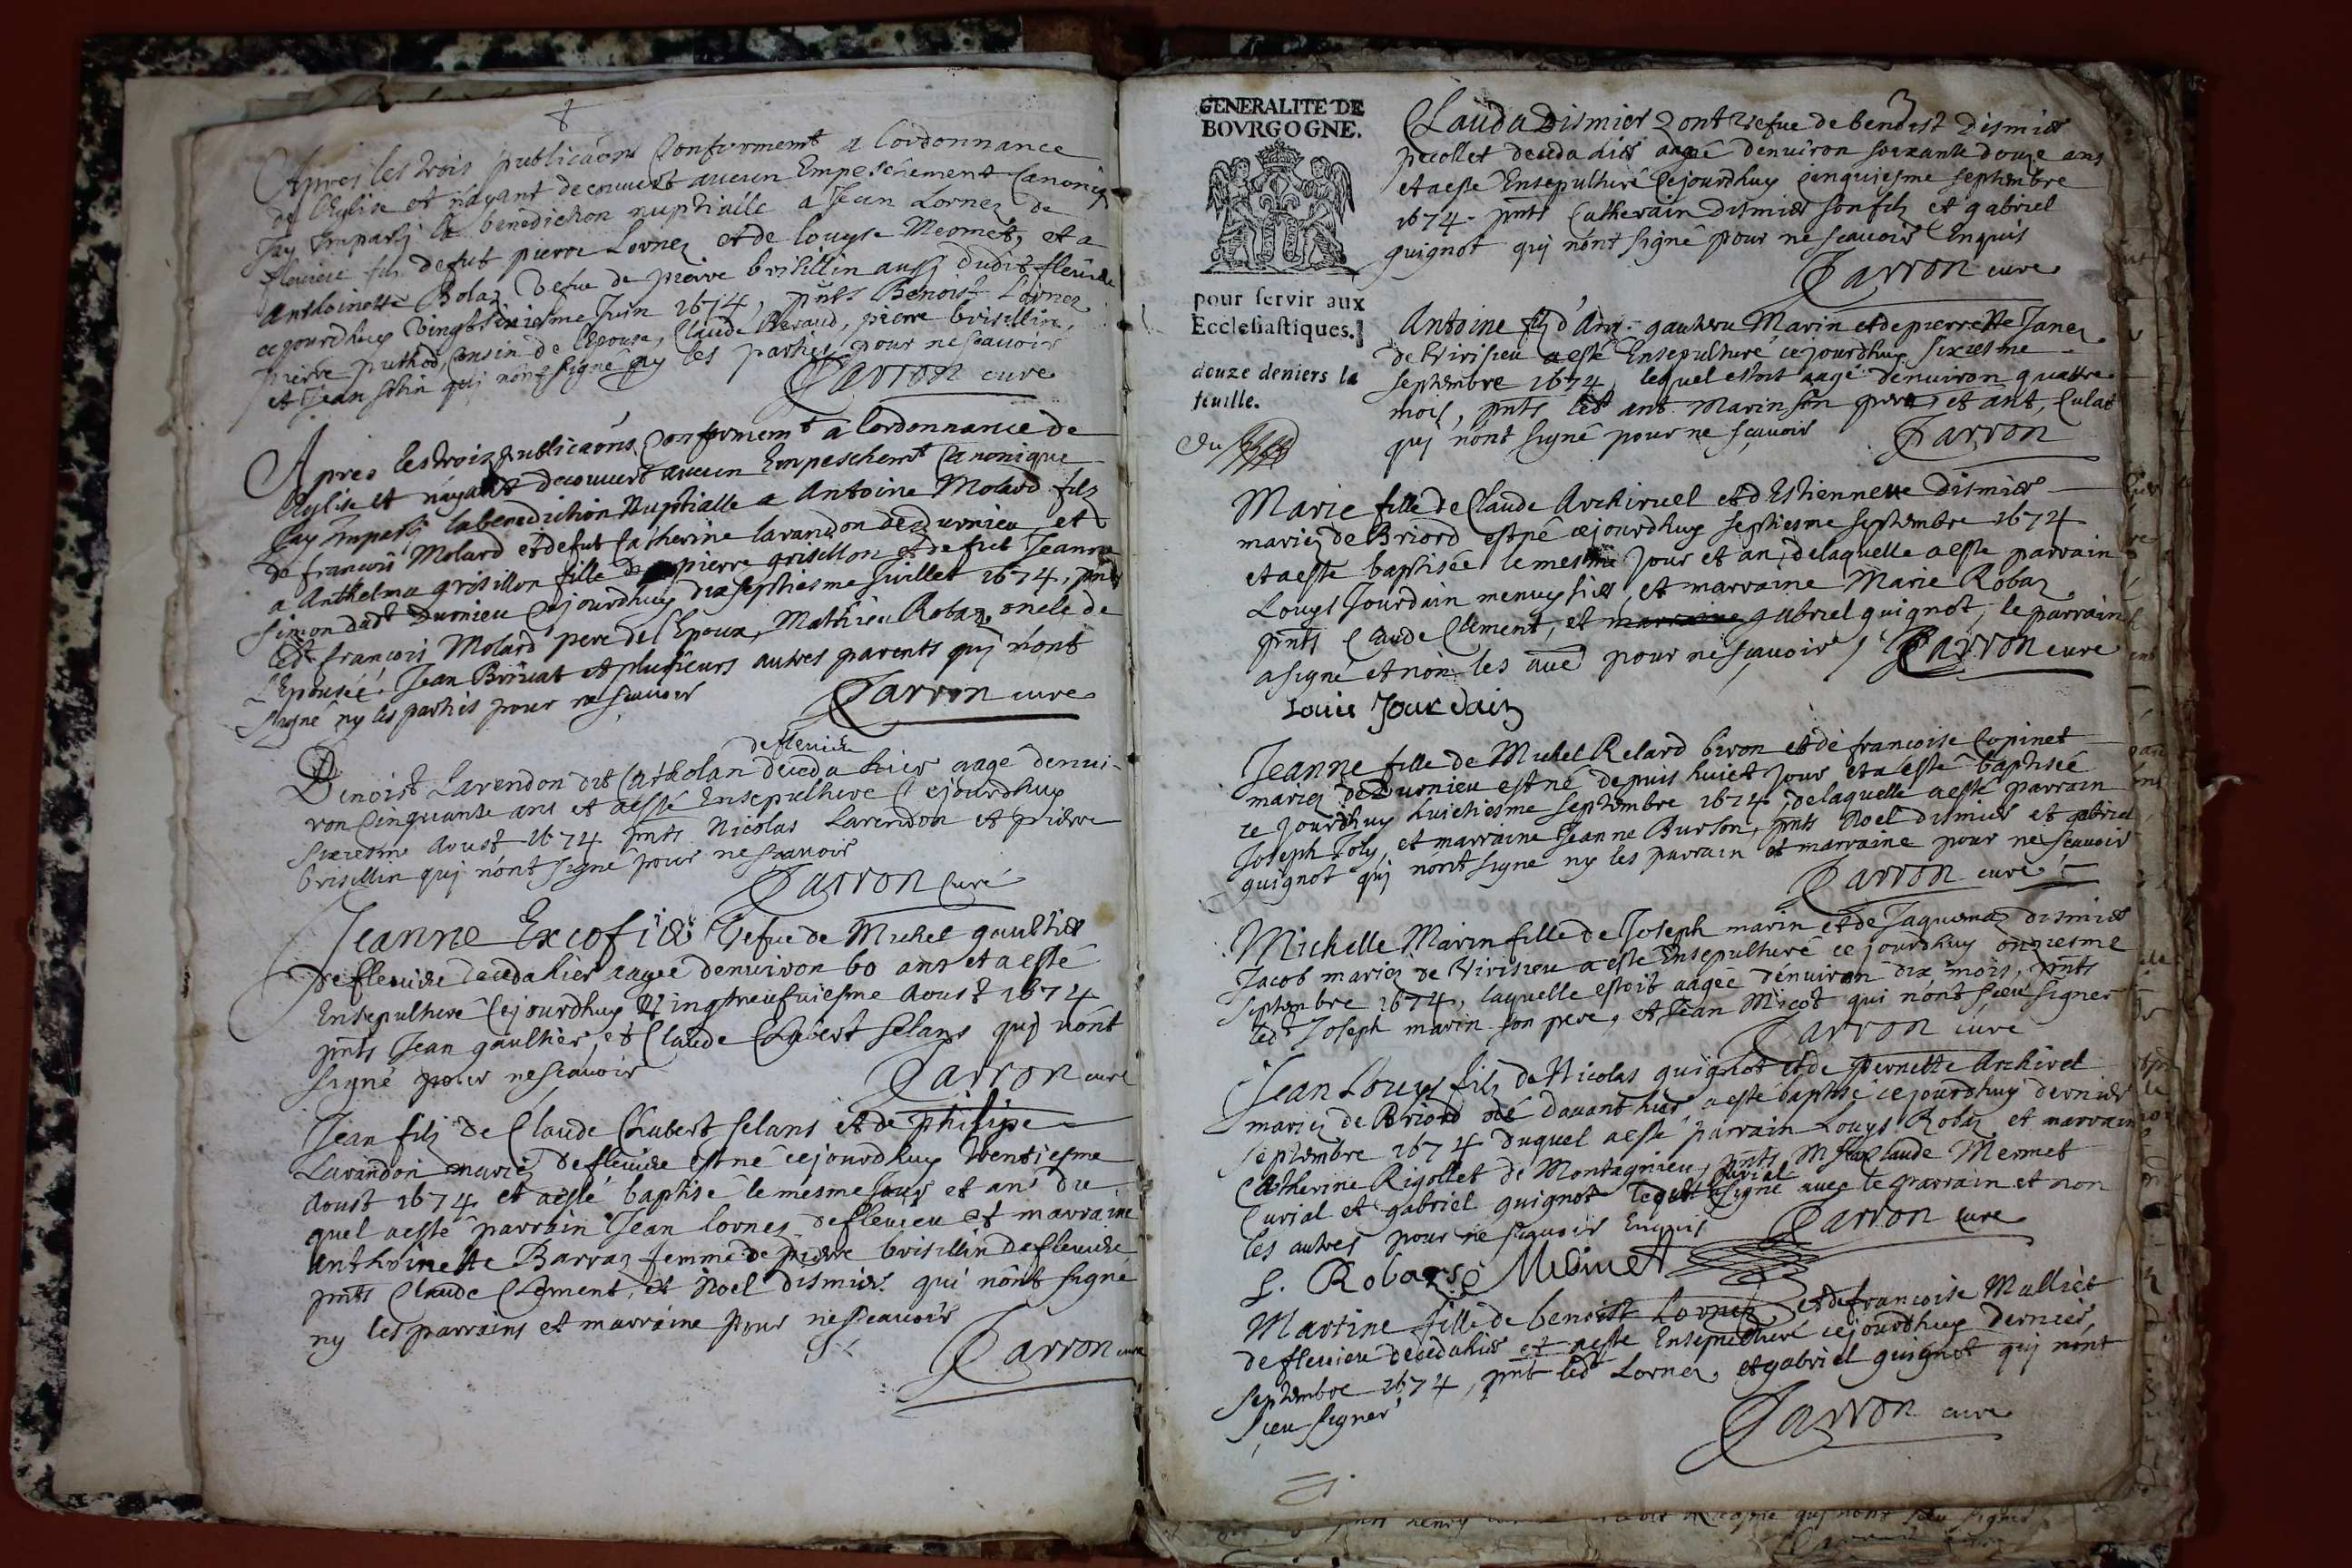 Apres les trois publicaons Conformemt a lordonnance
de lEglise et nayant decouuert aucun Empeschement Canoniq
Jay Imparty la benediction nuptialle a Jean Lornez de
fleurieu fils de fut pierre Lornez et de Louyse Mermet, et a
Anthoinette Bolaz vefue de pierre brisillin aussj dudit fleurieu
cejourdhuy vingtsixiesme Juin 1674, pnts Benoist Lornez
pierre puthod, Cousin de lEpouse, Claude Beraud, pierre brisillin,
et Jean qui nont signé ny les parties pour ne scauoir
Jarron cure
Apres les trois publicaons Conformemt a lordonnance de
lEglise et nayant decouuert aucun Empeschemt Canonique
Jay Imparty la benediction Nuptialle a Antoine Molard fils
de francois Molard et de fut Catherine lavandon de Durnieu et
a Anthelma grisillon fille de pierre grisillon et de fut Jeanne
simon dudt Durnieu Cejourdhuy dix septiesme Juillet 1674, pnts
ledt francois Molard pere de lEpoux, Mathieu Robaz oncle de
lEpousée, Jean Brucat et plusieurs autres parents quj nont
signé ny les parties pour ne scauoir Jarron cure
de fleurieu
Benoist Lavendon dit Catholan deceda hier aagé denui-
ron Cinquante ans et aesté Ensepulture Cejourdhuy
sixiesme Aoust 1674 pnts Nicolas Lavendon et pierre
brisillin quj nont signé pour ne scauoir
Jarron Curé
Jeanne Excofier vefue de Michel gaultier
de fleurieu deceda hier aagée denuiron 60 ans et a esté
Ensepulturé Cejourdhuy Vingtneufuiesme Aoust 1674
pnts Jean gaultier, et Claude Chabert selans quj nont
signé pour ne scauoir Jarron curé
Jean fils de Claude Chabert selans et de philipe
Lavandon mariéz de fleurieu est né cejourdhuy trentiesme
Aoust 1674 et aesté baptisé le mesme jour et an du
quel aesté parrain Jean lornez de fleurieu et marraine
Anthoinette Barraz femme de pierre brisillin de fleurieu
pnts Claude Clement, et Noel dismier qui nont signé
ny les parrains et marraine pour ne scauoir
Jarron cure
GENERALITE DE
BOVRGOGNE.
pour servir aux
Ecclesiastiques.
douze deniers la
feuille.
3
Clauda Dismier vefue de benoist Dismier
pecollet deceda hier aagé denuiron soixante douze ans
et aeste Ensepulturé Cejourdhuy Cinquiesme septembre
1674. pnts Catherain dismier son filz et gabriel
guignot quj nont signé pour ne scauoir Enquis
Jarron cure
Antoine filz d'Ant. gauthru Marin et de pierrette Janez
de Virisieu a esté Ensepulturé cejourdhuy sixiesme
septembre 1674, lequel estoit aagé denuiron quattre
mois, pnts ledt ant. Marin son pere, et ant, Culat
quj nont signé pour ne scauoir Jarron
Marie fille de Claude Archiruel et d'Estiennette Dismier
mariez de Briord est né cejourdhuy septiesme septembre 1674
et aeste baptisée le mesme Jour et an, de laquelle aeste parrain
Louys Jourdain menuysier, et marraine Marie Robaz
pnts Claude Clement, et marraine gabriel guignot, le parrain
a signé et non les autres pour ne scauoir Jarron cure
Louis Jourdain
Jeanne fille de Michel Relard biron et de francoise Copinet
mariez de Durnieu est né depuis huict Jour et a esté baptisée
ce Jourdhuy huictiesme septembre 1674, de laquelle aesté parrain
Joseph Joly, et marraine Jeanne Burson, pnts Noel dismier et gabriel
guignot quj nont signé ny les parrain et marraine pour ne scauoir
Jarron cure
Michelle Marin fille de Joseph marin et de Jaquemaz dismier
Jacob mariez de Virisieu a esté Ensepulturé ce jourdhuy onziesme
septembre 1674, laquelle estoit aagée denuiron dix mois, pnts
ledt Joseph marin son pere, et Jean Micot qui nont sceu signer
Jarron cure
Jean Louys filz de Nicolas guignot et de pernette Archirel
mariez de Briord né dauant hier, a esté baptisé cejourdhuy dernier
septembre 1674 duquel aesté parrain Louys Robaz et marraine
Catherine Rigollet de Montagnieu, pnts Mre Claude Mermet
Curial et gabriel guignot ledt Curial a signé auec le parrain et non
les autres pour ne scauoir Enquis Jarron cure
L. Robaz Mermet
Martine fille de benoist Lornez et de francoise Mallièt
de fleurieu deceda hier et aeste Ensepulturé cejourdhuy dernier
septembre 1674, pnt ledt Lornez, et gabriel guignot quj nont
sceu signer
Jarron cure